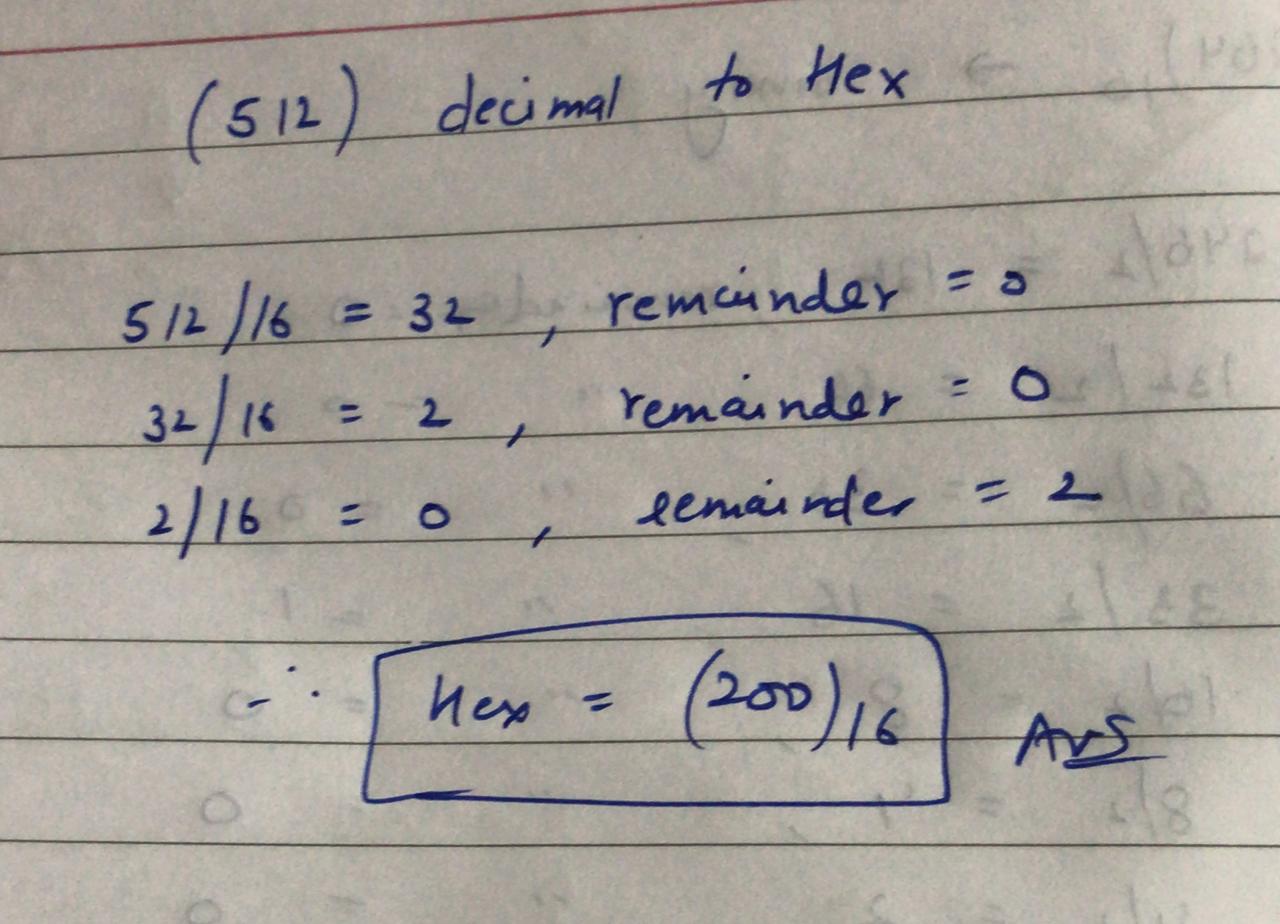 (512) decimal to Hex
512/16 = 32 , remainder = 0
32/16 = 2 , remainder = 0
2/16 = 0 , remainder = 2
∴ Hex = (200)₁₆ Ans